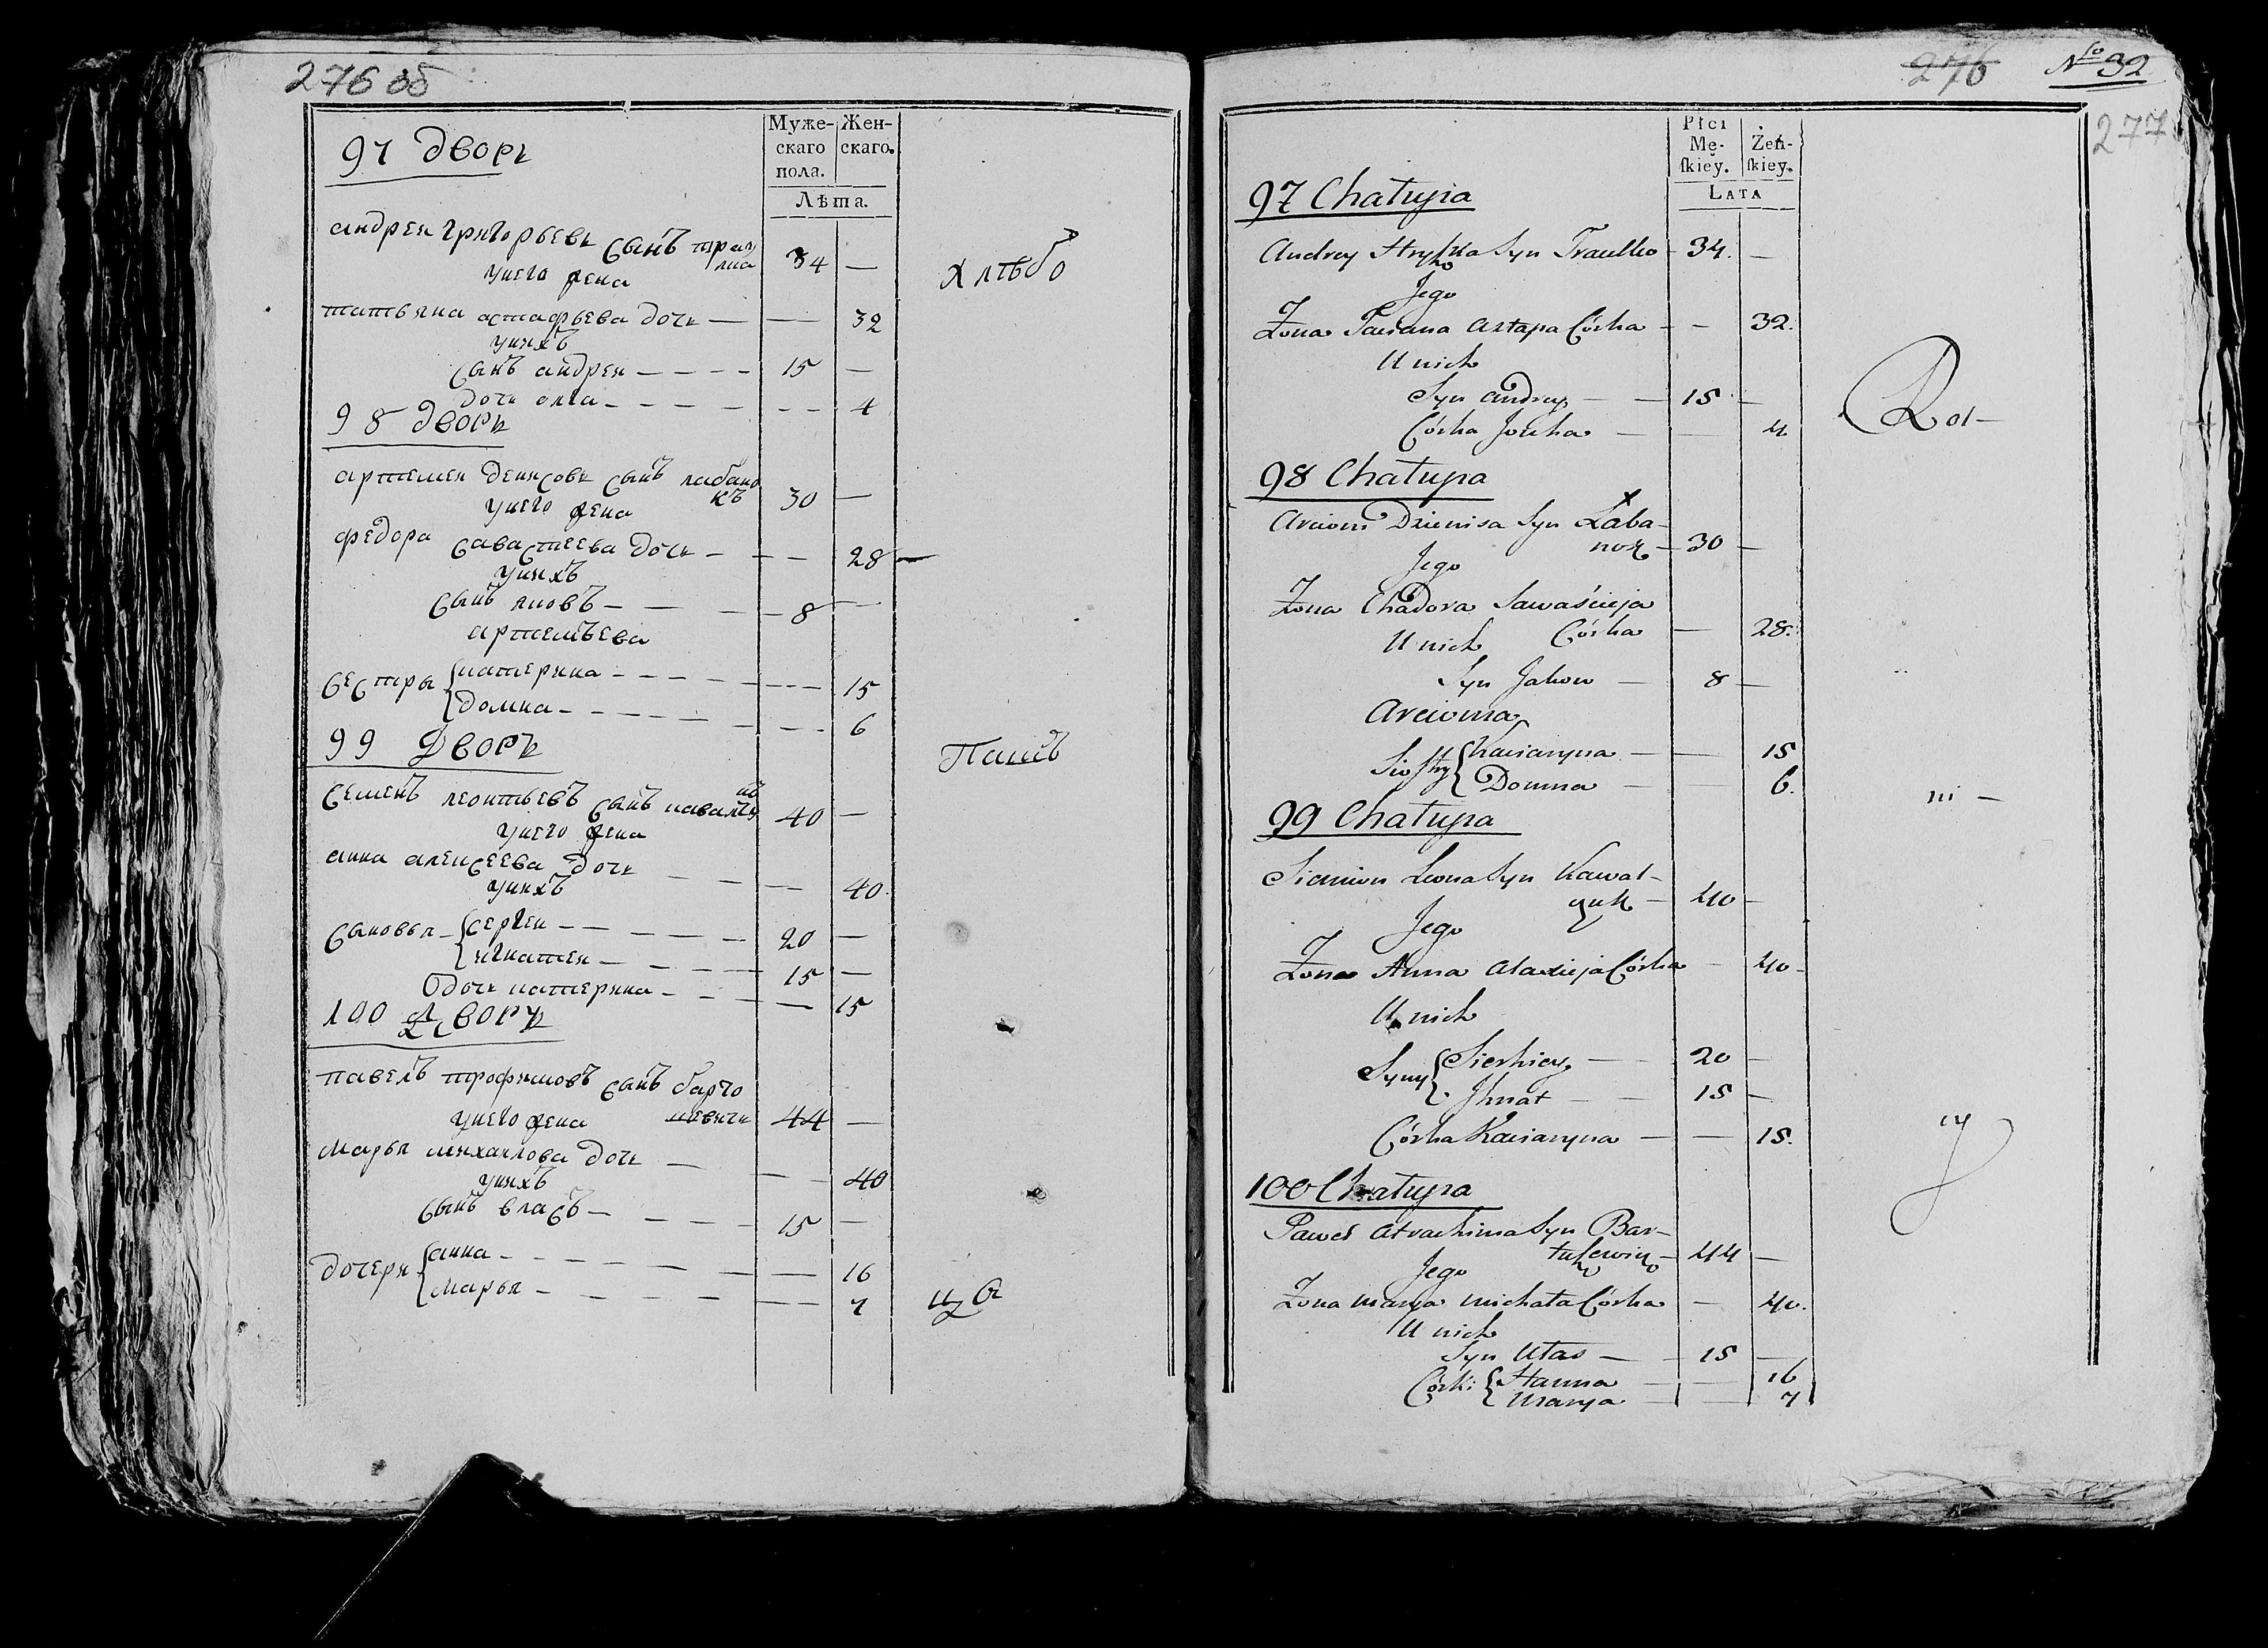 276 об
Муже-
скаго
пола.
Жен-
скаго.
Лѣта.
97 дворъ
андреи григорьевъ сынъ трау
лка 34 —
унего жена
татьяна астафьева дочь — — 32
унихъ
сынъ андреи — — — — 15 —
дочь олга — — — — 4
98 дворъ
артемеи денисовъ сынъ лабано
къ 30 —
унего жена
федора савастеева дочь — — — 28 —
унихъ
сынъ яковъ — — — 8 —
артемьева
сестры { катерина — — — — 15
{ домна — — — — 6
99 дворъ
семенъ леонтьевъ сынъ кавальчи
къ 40 —
унего жена
анна алексеева дочь — — — 40.
унихъ
сыновья — { сергеи — — — 20 —
{ игнатеи — — — 15 —
дочь катерина — — — 15
100 дворъ
павелъ трофимовъ сынъ барто
унего жена 44 —
марья михаилова дочь — — — 40
унихъ
сынъ власъ — — — 15 —
дочери { анна — — — — 16
{ марья — — — — 7
Хлѣбо
Пашѣ
цы
276
No 32
277
Płci
Mę-
skiey.
Żeń-
skiey.
LATA
97 Chałupa
Andrey Hryszka Syn Traulko — 34. —
Jego
Żona Taciana Astapa Córka — — 32.
U nich
Syn Andrey — — 15 —
Córka — — 4
98 Chałupa
x
Arciom Dzienisa Syn Łaba-
nok — 30 —
Jego
Żona Chadora Sawaścieja
Córka — 28.
U nich
Syn Jakow — 8 —
Arcioma
Siostry { Kaciaryna — — 15
{ Domna — — 6.
99 Chałupa
Siemion Leona Syn Kawal-
czuk — 40 —
Jego
Żona Anna Alaxieja Córka — 40 —
U nich
Syny { Sierhiey — 20 —
{ Jhnat — — 15 —
Córka Kaciaryna — — 15.
100 Chałupa
Paweł Atrachima Syn Bar-
44 —
Jego
Żona Marya Michała Córka — 40.
U nich
Syn Ułas — — 15 —
Córki { Hanna — — 16
{ Marya — — 7
Rol-
ni —
cy